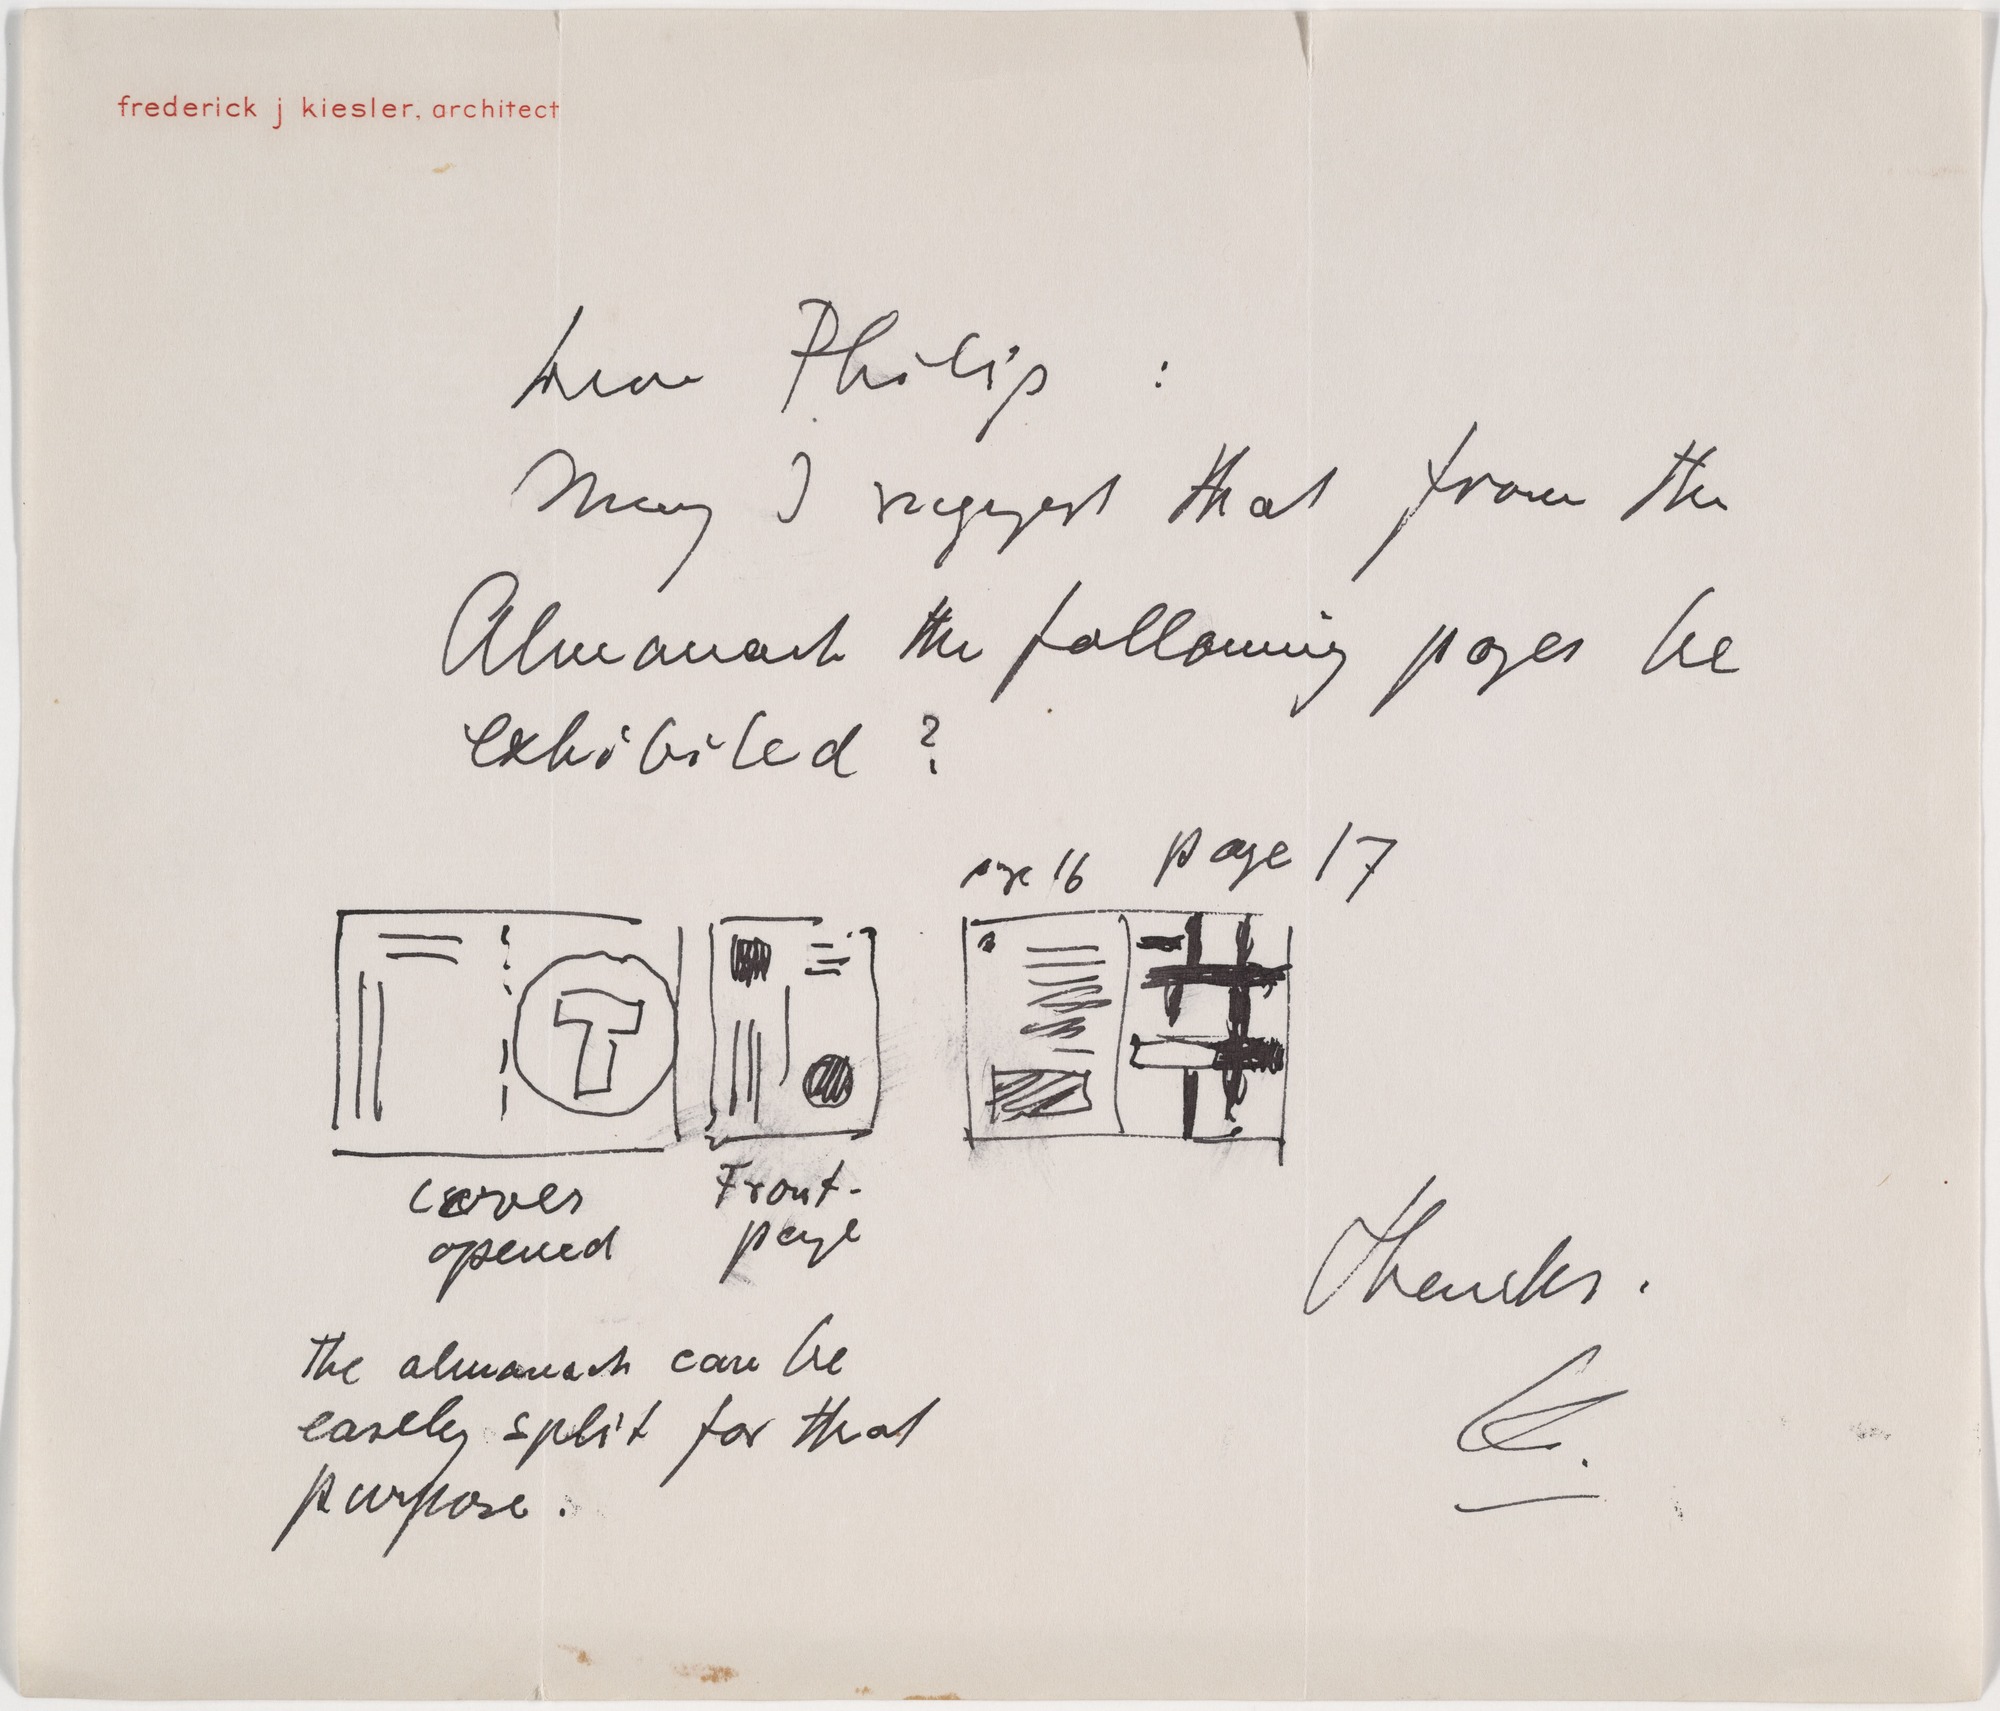 frederick j kiesler, architect
Dear Philip :
May I suggest that from the
Almanach the following pages be
exhibited ?
page 16 page 17
T
cover Front-
opened page
Thanks.
the almanach can be
easely split for that
purpose.
K.